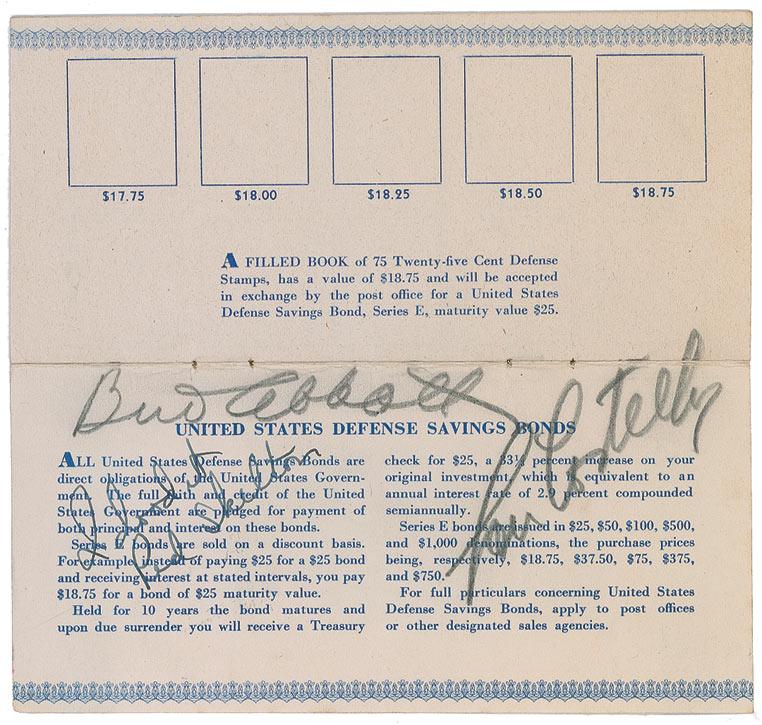 $17.75 $18.00 $18.25 $18.50 $18.75
A FILLED BOOK of 75 Twenty-five Cent Defense
Stamps, has a value of $18.75 and will be accepted
in exchange by the post office for a United States
Defense Savings Bond, Series E, maturity value $25.
Bud Abbott
Lou Costello
UNITED STATES DEFENSE SAVINGS BONDS
ALL United States Defense Savings Bonds are
direct obligations of the United States Govern-
ment. The full faith and credit of the United
States Government are pledged for payment of
both principal and interest on these bonds.
Series E bonds are sold on a discount basis.
For example instead of paying $25 for a $25 bond
and receiving interest at stated intervals, you pay
$18.75 for a bond of $25 maturity value.
Held for 10 years the bond matures and
upon due surrender you will receive a Treasury
I dood it
Red Skelton
check for $25, a 33⅓ percent increase on your
original investment, which is equivalent to an
annual interest rate of 2.9 percent compounded
semiannually.
Series E bonds are issued in $25, $50, $100, $500,
and $1,000 denominations, the purchase prices
being, respectively, $18.75, $37.50, $75, $375,
and $750.
For full particulars concerning United States
Defense Savings Bonds, apply to post offices
or other designated sales agencies.